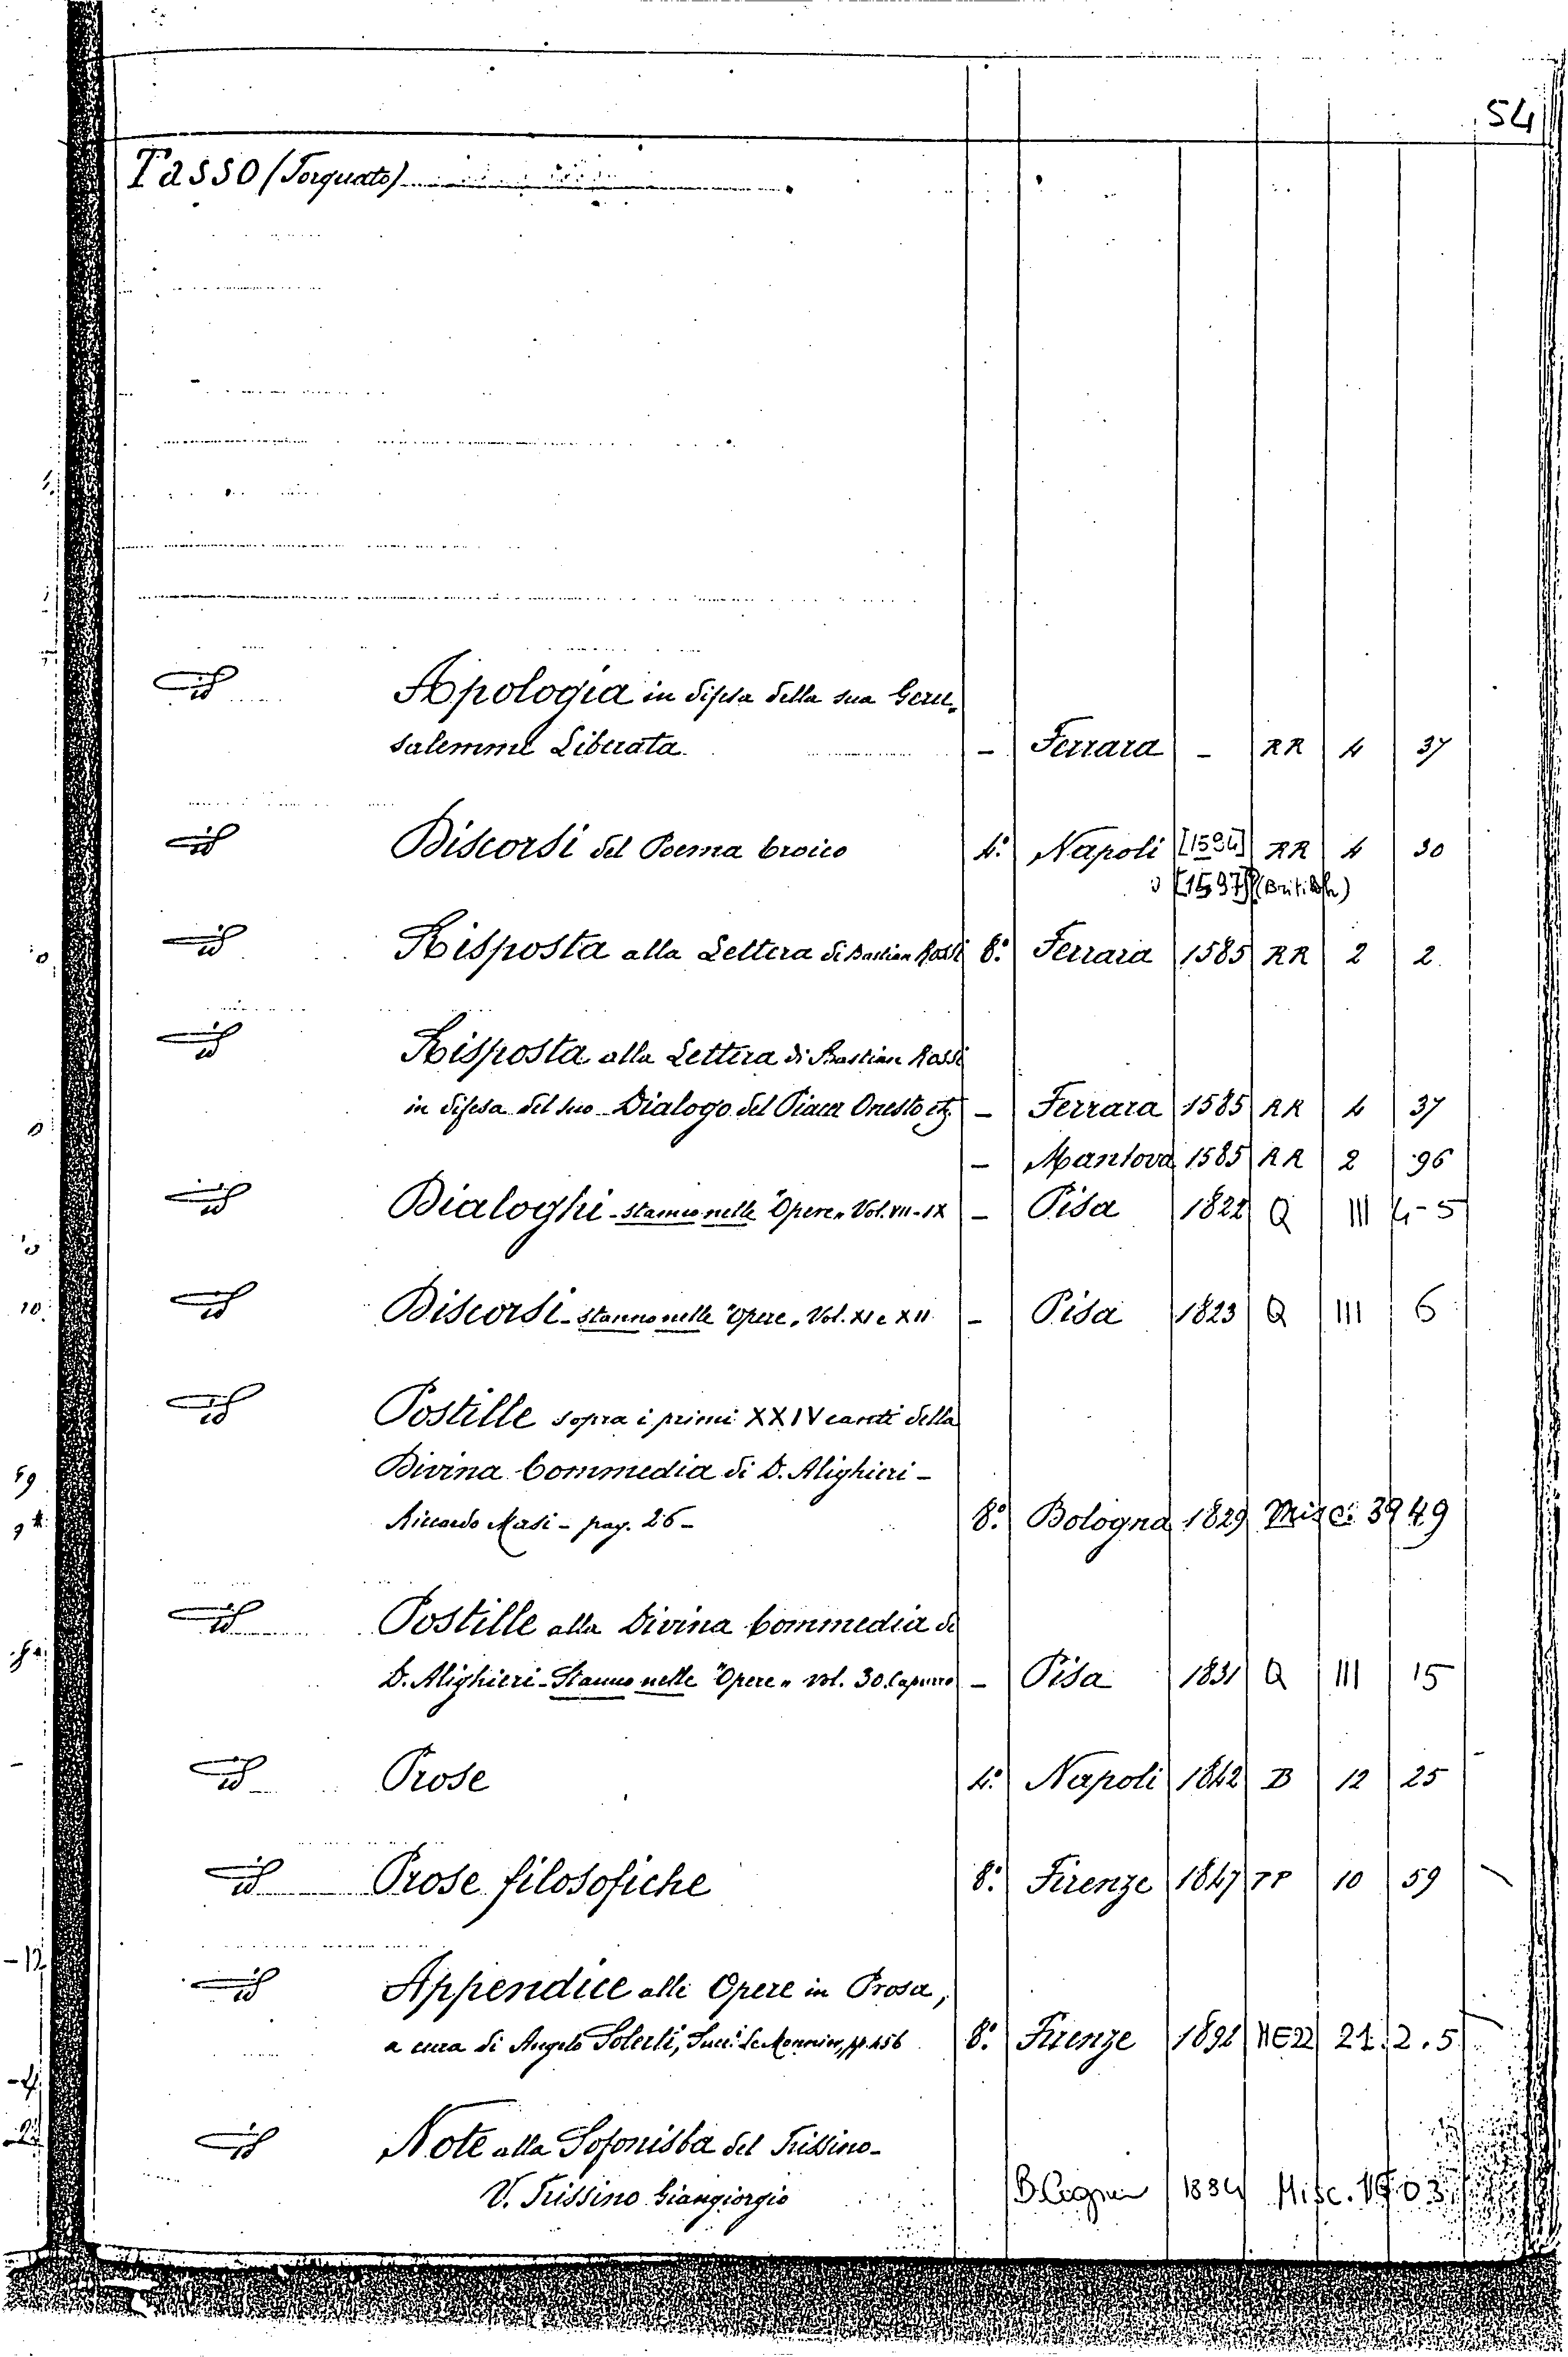 54
Tasso (Torquato)
id Apologia in difesa della sua Geru-
salemme Liberata - Ferrara - RR 4 37
id Discorsi del Poema Eroico 4.° Napoli [1594] RR 4 30
o [1597] (British)
id Risposta alla Lettera di Bastian Rossi 8.° Ferrara 1585 RR 2 2
id Risposta alla Lettera di Bastian Rossi
in difesa del suo Dialogo del Piacer Onesto etz. - Ferrara 1585 RR 4 37
- Mantova 1585 RR 2 96
id Dialoghi - stanno nelle "Opere" Vol. VII-IX - Pisa 1822 Q III 4-5
id Discorsi - stanno nelle "Opere" Vol. XI e XII - Pisa 1823 Q III 6
id Postille sopra i primi XXIV canti della
Divina Commedia di D. Alighieri -
Riccardo Masi - pag. 26 - 8.° Bologna 1829 Misc: 3949
id Postille alla Divina Commedia di
D. Alighieri - Stanno nelle "Opere" vol. 30. Capurro - Pisa 1831 Q III 15
id Prose 4.° Napoli 1842 B 12 25
id Prose filosofiche 8.° Firenze 1847 PP 10 59
id Appendice alle Opere in Prosa,
a cura di Angelo Solerti, Succ. Le Monnier, pp. 456 8.° Firenze 1892 NE22 21.2.5
id Note alla Sofonisba del Trissino -
V. Trissino Giangiorgio 1884 Misc.